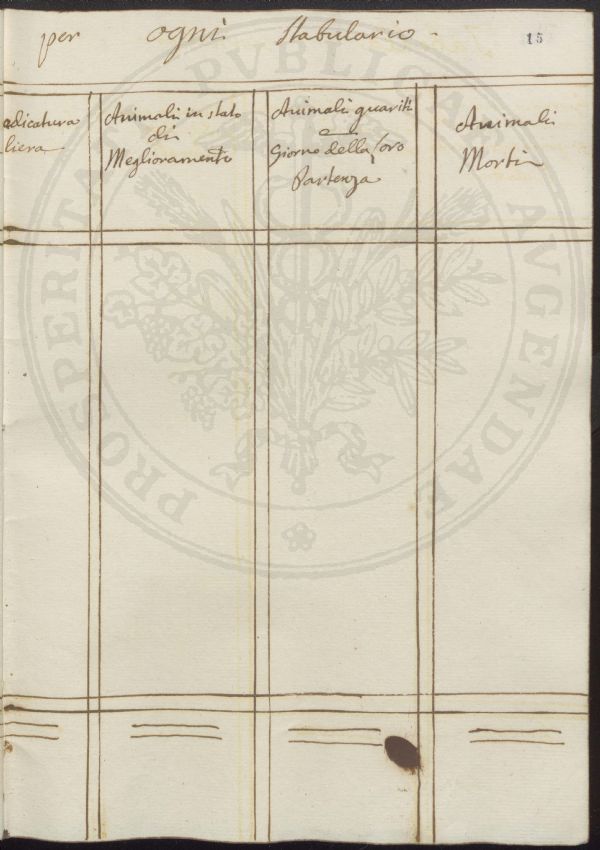 per ogni Stabulario.
15
adicatura
liera
Animali in stato
di
Meglioramento
Animali guariti
e
Giorno della loro
Partenza
Animali
Morti
PROSPERITATI PVBLICAE AVGENDAE